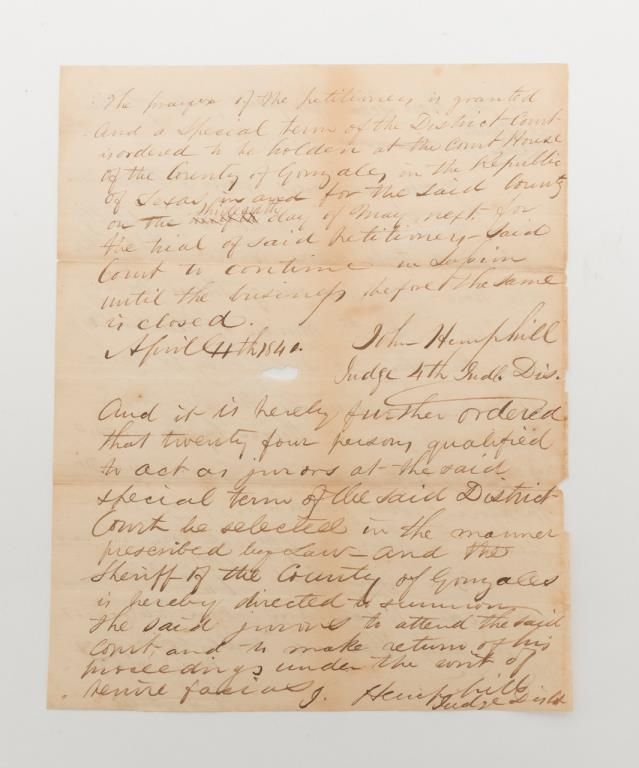 The prayer of the petitioners is granted
and a special term of the District Court
is ordered to be holden at the Court House
of the County of Gonzales, in the Republic
of Texas, in and for the said County
on the day of May next for
the trial of said petitioners – said
Court to continue in Session
until the business before the same
is closed.
April 11th 1840. John Hemphill
Judge 4th Judl. Dis.
And it is hereby further ordered
that twenty four persons qualified
to act as jurors at the said
special term of the said District
Court be selected in the manner
prescribed by Law – and the
Sheriff of the County of Gonzales
is hereby directed to summon
the said jurors to attend the said
court, and to make return of his
proceedings under the writ of
venire facias J. Hemphill
Judge